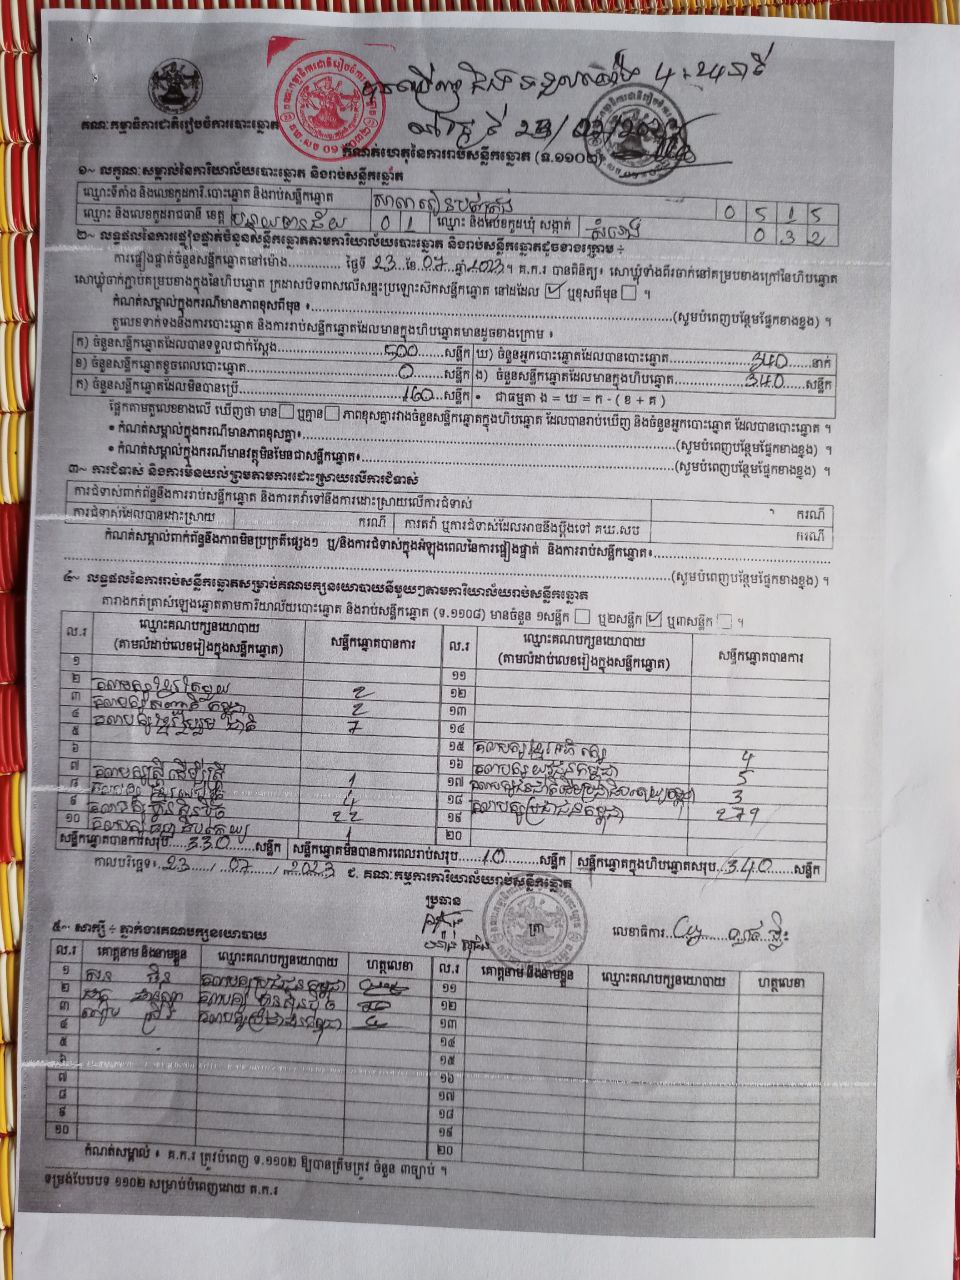 គណៈកម្មាធិការជាតិរៀបចំការបោះឆ្នោត
កំណត់ហេតុនៃការរាប់សន្លឹកឆ្នោត (ទ.១១០២)
១~ លក្ខណៈសម្គាល់នៃការិយាល័យបោះឆ្នោត និងរាប់សន្លឹកឆ្នោត
ឈ្មោះទីតាំង និងលេខកូដការិ.បោះឆ្នោត និងរាប់សន្លឹកឆ្នោត 0 5 1 5
ឈ្មោះ និងលេខកូដរាជធានី ខេត្ត បន្ទាយមានជ័យ 0 1 ឈ្មោះ និងលេខកូដឃុំ សង្កាត់ 0 3 2
២~ លទ្ធផលនៃការផ្ទៀងផ្ទាត់ចំនួនសន្លឹកឆ្នោតតាមការិយាល័យបោះឆ្នោត និងរាប់សន្លឹកឆ្នោតដូចខាងក្រោម ÷
ការផ្ទៀងផ្ទាត់ចំនួនសន្លឹកឆ្នោតនៅម៉ោង.............. ថ្ងៃទី 23 ខែ 07 ឆ្នាំ 2023 ។ គ.ក.រ បានពិនិត្យ៖ សោឃ្លុំទាំងពីរចាក់នៅគម្របខាងក្រៅនៃហិបឆ្នោត
សោឃ្លុំចាក់ភ្ជាប់គម្របខាងក្នុងនៃហិបឆ្នោត ក្រដាសបិទពាសលើសន្ទះប្រឡោះសិកសន្លឹកឆ្នោត នៅដដែល ☑ ឬខុសពីមុន ☐ ។
កំណត់សម្គាល់ក្នុងករណីមានភាពខុសពីមុន ៖ (សូមបំពេញបន្ថែមផ្នែកខាងខ្នង) ។
តួលេខទាក់ទងនឹងការបោះឆ្នោត និងការរាប់សន្លឹកឆ្នោតដែលមានក្នុងហិបឆ្នោតមានដូចខាងក្រោម ៖
ក) ចំនួនសន្លឹកឆ្នោតដែលបានទទួលជាក់ស្តែង 500 សន្លឹក ឃ) ចំនួនអ្នកបោះឆ្នោតដែលបានបោះឆ្នោត 340 នាក់
ខ) ចំនួនសន្លឹកឆ្នោតខូចពេលបោះឆ្នោត 0 សន្លឹក ង) ចំនួនសន្លឹកឆ្នោតដែលមានក្នុងហិបឆ្នោត 340 សន្លឹក
គ) ចំនួនសន្លឹកឆ្នោតដែលមិនបានប្រើ 160 សន្លឹក • ជាធម្មតា ង = ឃ = ក - ( ខ + គ )
ផ្អែកតាមតួលេខខាងលើ ឃើញថា មាន ☐ ឬគ្មាន ☐ ភាពខុសគ្នារវាងចំនួនសន្លឹកឆ្នោតក្នុងហិបឆ្នោត ដែលបានរាប់ឃើញ និងចំនួនអ្នកបោះឆ្នោត ដែលបានបោះឆ្នោត ។
• កំណត់សម្គាល់ក្នុងករណីមានភាពខុសគ្នា៖ (សូមបំពេញបន្ថែមផ្នែកខាងខ្នង) ។
• កំណត់សម្គាល់ក្នុងករណីមានវត្ថុមិនមែនជាសន្លឹកឆ្នោត៖ (សូមបំពេញបន្ថែមផ្នែកខាងខ្នង) ។
៣~ ការជំទាស់ និងការមិនយល់ព្រមតាមការដោះស្រាយលើការជំទាស់
ការជំទាស់ពាក់ព័ន្ធនឹងការរាប់សន្លឹកឆ្នោត និងការតវ៉ាទៅនឹងការដោះស្រាយលើការជំទាស់ ករណី
ការជំទាស់ដែលបានដោះស្រាយ ករណី ការតវ៉ា ឬការជំទាស់ដែលអាចនឹងប្តឹងទៅ គឃ.សប ករណី
កំណត់សម្គាល់ពាក់ព័ន្ធនឹងភាពមិនប្រក្រតីផ្សេងៗ ឬ/និងការជំទាស់ក្នុងអំឡុងពេលនៃការផ្ទៀងផ្ទាត់ និងការរាប់សន្លឹកឆ្នោត៖
(សូមបំពេញបន្ថែមផ្នែកខាងខ្នង) ។
៤~ លទ្ធផលនៃការរាប់សន្លឹកឆ្នោតសម្រាប់គណបក្សនយោបាយនីមួយៗតាមការិយាល័យរាប់សន្លឹកឆ្នោត
តារាងកត់ត្រាសំឡេងឆ្នោតតាមការិយាល័យបោះឆ្នោត និងរាប់សន្លឹកឆ្នោត (ទ.១១០៨) មានចំនួន ១សន្លឹក ☐ ឬ២សន្លឹក ☑ ឬ៣សន្លឹក ☐ ។
ល.រ ឈ្មោះគណបក្សនយោបាយ (តាមលំដាប់លេខរៀងក្នុងសន្លឹកឆ្នោត) សន្លឹកឆ្នោតបានការ ល.រ ឈ្មោះគណបក្សនយោបាយ (តាមលំដាប់លេខរៀងក្នុងសន្លឹកឆ្នោត) សន្លឹកឆ្នោតបានការ
១ ១១
២ 2 ១២
៣ 2 ១៣
៤ គណបក្សខ្មែររួបរួមជាតិ 7 ១៤
៥ ១៥ 4
៦ ១៦ គណបក្សយុវជនកម្ពុជា 5
៧ គណបក្សស្ត្រីដើម្បីស្ត្រី 1 ១៧ 3
៨ 4 ១៨ គណបក្សប្រជាជនកម្ពុជា 279
៩ 22 ១៩
១០ 1 ២០
សន្លឹកឆ្នោតបានការសរុប 330 សន្លឹក សន្លឹកឆ្នោតមិនបានការពេលរាប់សរុប 10 សន្លឹក សន្លឹកឆ្នោតក្នុងហិបឆ្នោតសរុប 340 សន្លឹក
កាលបរិច្ឆេទ៖ 23 / 07 / 2023 ជ. គណៈកម្មការការិយាល័យរាប់សន្លឹកឆ្នោត
ប្រធាន
ត្រា
លេខាធិការ
៥~ សាក្សី ÷ ភ្នាក់ងារគណបក្សនយោបាយ
ល.រ គោត្តនាម និងនាមខ្លួន ឈ្មោះគណបក្សនយោបាយ ហត្ថលេខា ល.រ គោត្តនាម និងនាមខ្លួន ឈ្មោះគណបក្សនយោបាយ ហត្ថលេខា
១ គណបក្សប្រជាជនកម្ពុជា ១១
២ ១២
៣ ១៣
៤ ១៤
៥ ១៥
៦ ១៦
៧ ១៧
៨ ១៨
៩ ១៩
១០ ២០
កំណត់សម្គាល់ ៖ គ.ក.រ ត្រូវបំពេញ ទ.១១០២ ឱ្យបានត្រឹមត្រូវ ចំនួន ៣ច្បាប់ ។
ទម្រង់បែបបទ ១១០២ សម្រាប់បំពេញដោយ គ.ក.រ